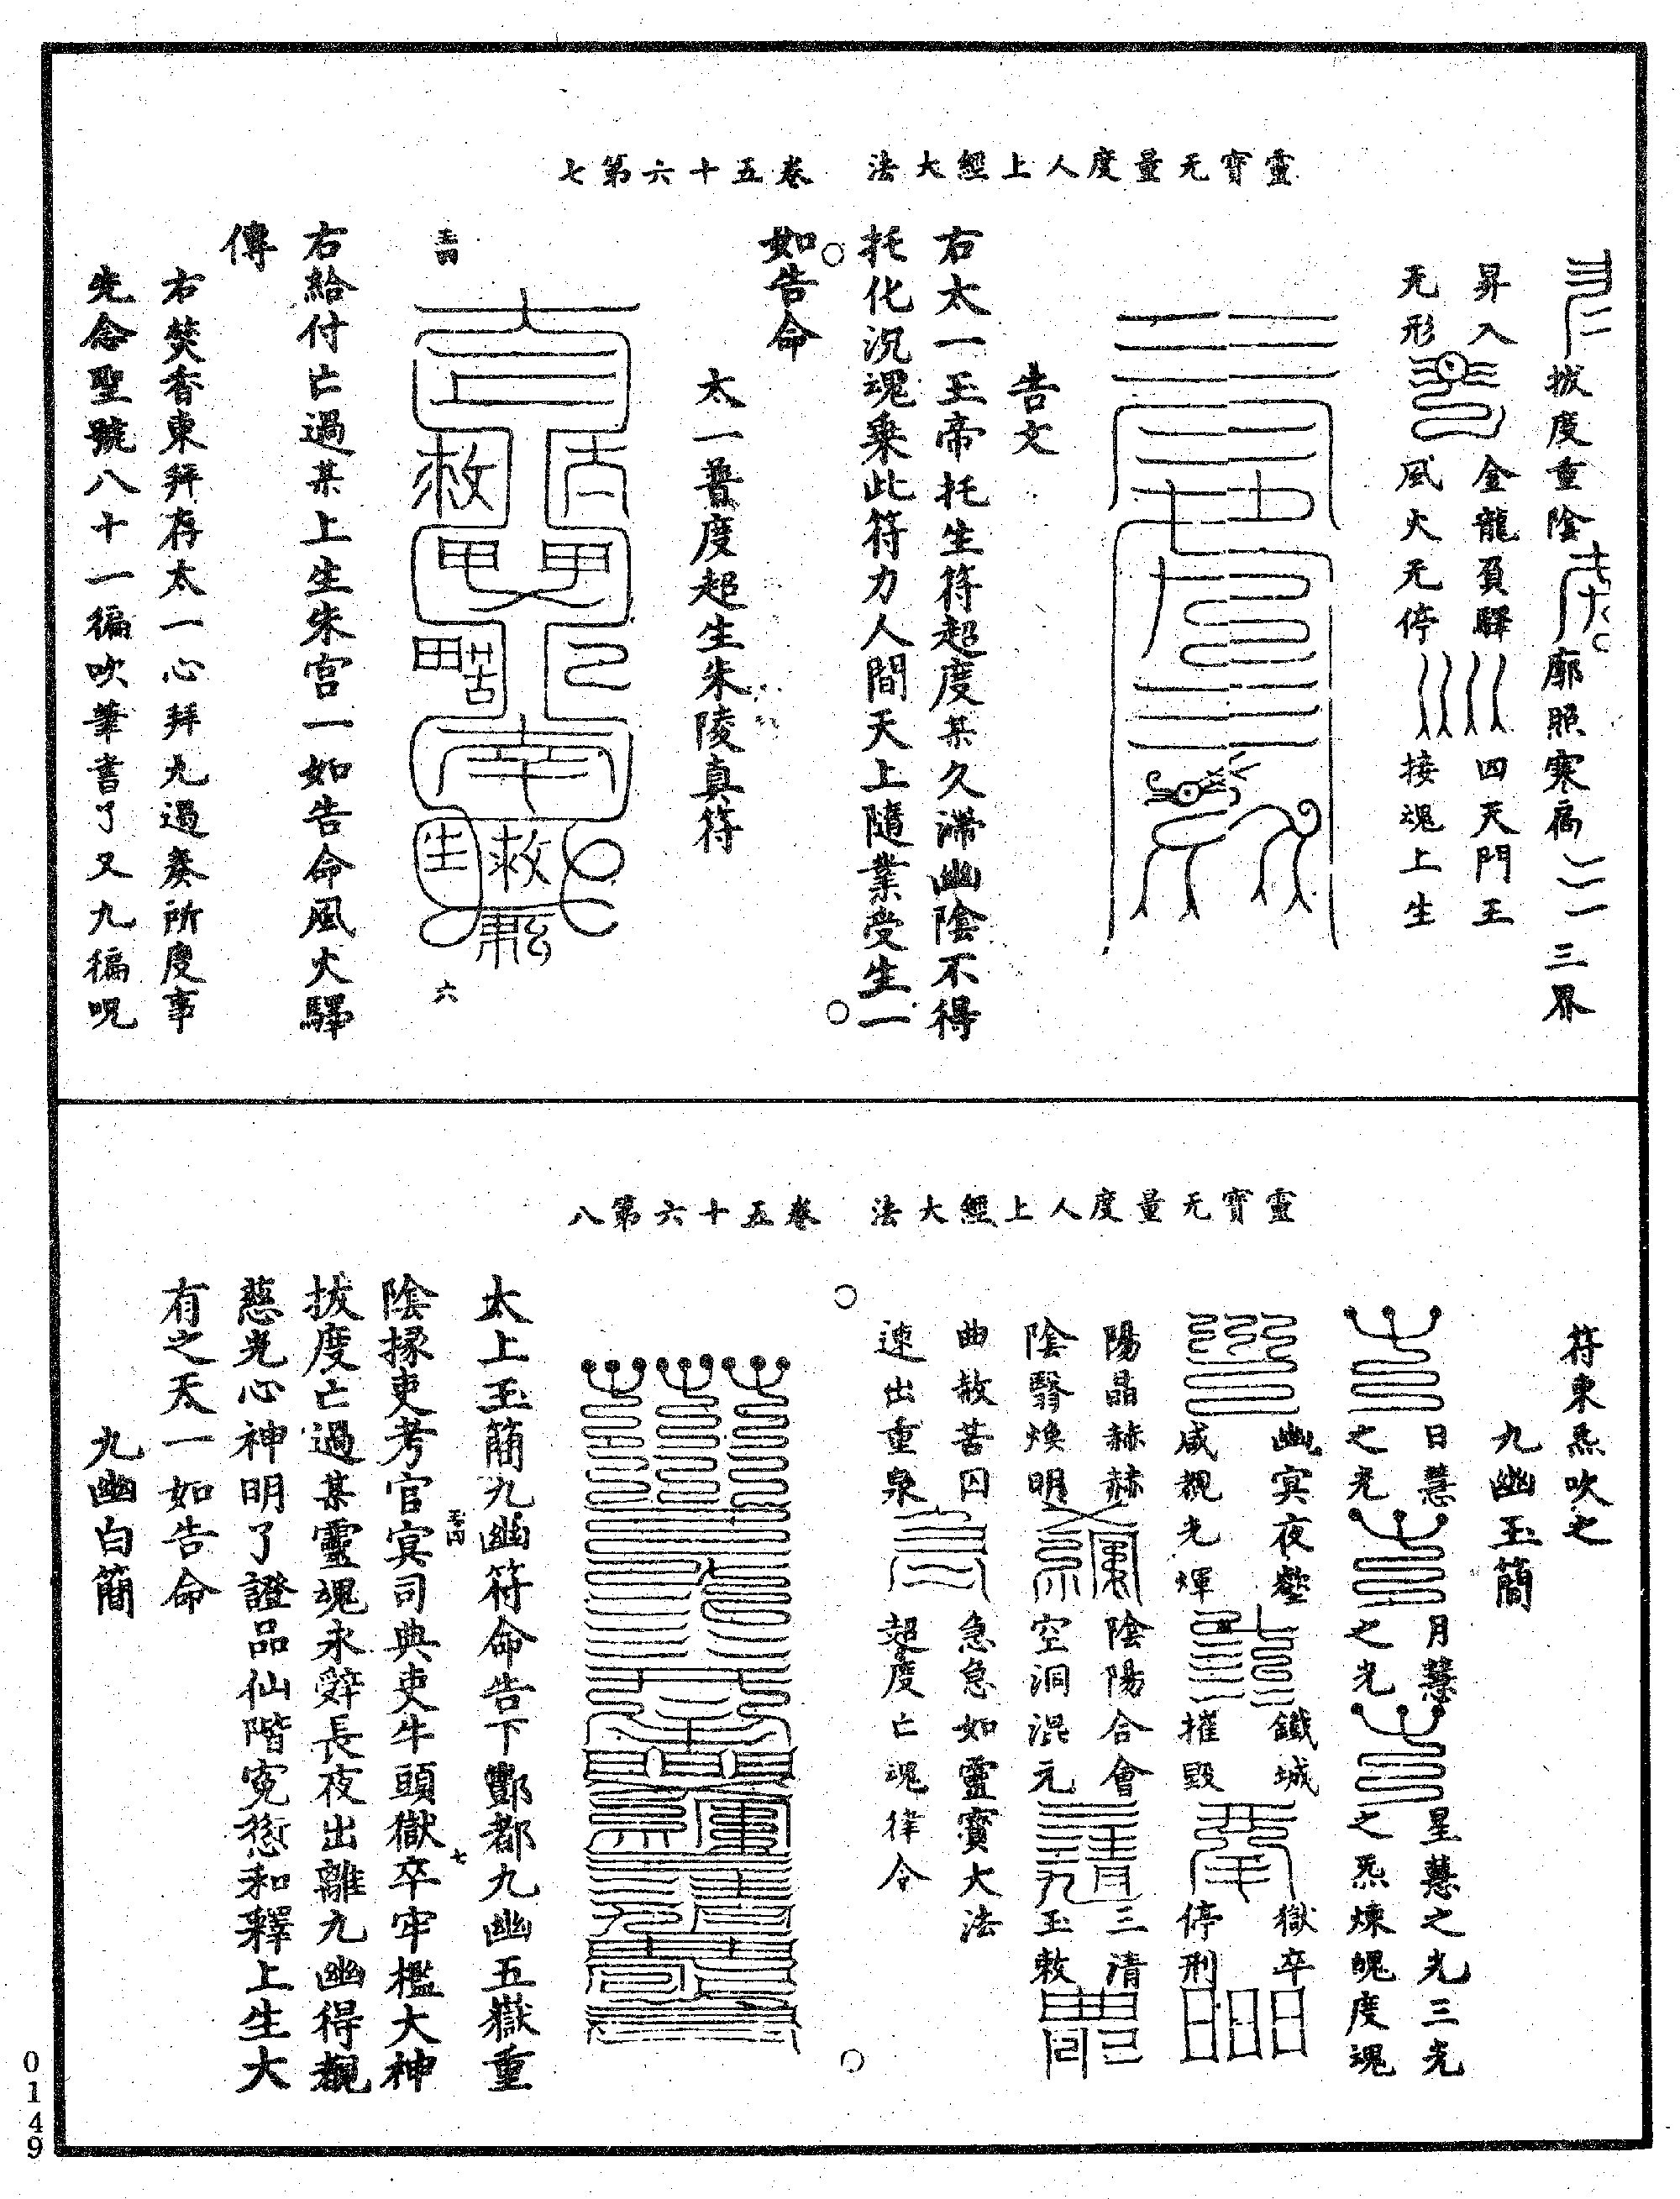 靈寶无量度人上經大法　卷五十六第七
拔度重陰
廓照寒扃
三界
昇入
金龍負驛
四天門王
无形
風火无停
接魂上生
告文
右太一王帝托生符超度某久滯幽陰不得
托化況魂乗此符力人間天上隨業受生一
如告命
太一普度超生朱陵真符
六
右給付亡過某上生朱宮一如告命風火驛
傳
右焚香東拜存太一心拜九過奏所度事
先念聖號八十一徧吹筆書了又九徧呪
靈寶无量度人上經大法　卷五十六第八
符東炁吹之
九幽玉簡
日慧
月慧
星慧之光三光
之光
之光
之炁煉魄度魂
幽冥夜壑
鐵城
獄卒
咸覩光煇
摧毀
停刑
陽晶赫赫
陰陽合會
三清
陰翳煥明
空洞混元
玉敕
曲赦苦囚
急急如靈寶大法
速出重泉
超度亡魂律令
太上玉簡九幽符命告下酆都九幽五嶽重
陰掾吏考官冥司典吏牛頭獄卒牢檻大神
七
拔度亡過某靈魂永辭長夜出離九幽得覩
慈光心神明了證品仙階寃愆和釋上生大
有之天一如告命
九幽白簡
0149